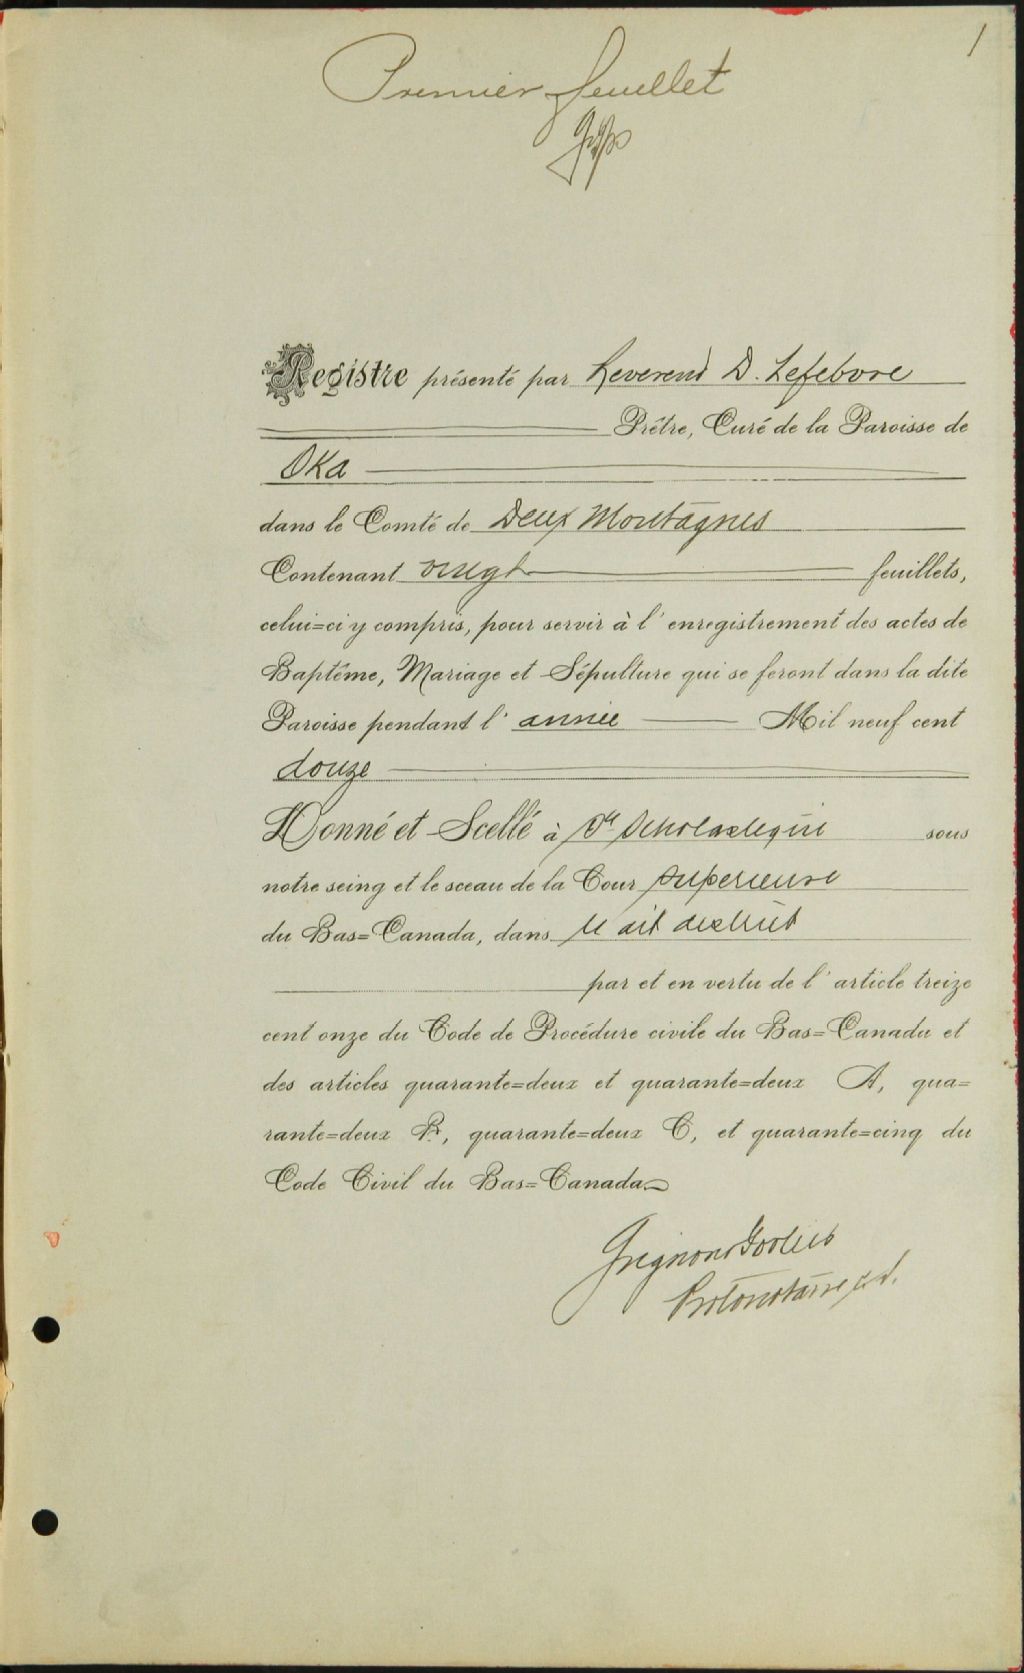 1
Premier feuillet
Registre présenté par Reverend D. Lefebvre
Prêtre, Curé de la Paroisse de
Oka
dans le Comté de Deux Montagnes
Contenant vingt feuillets,
celui=ci y compris, pour servir à l'enregistrement des actes de
Baptême, Mariage et Sépulture qui se feront dans la dite
Paroisse pendant l'année Mil neuf cent
douze
Donné et Scellé à Ste Scholastique sous
notre seing et le sceau de la Cour Superieure
du Bas=Canada, dans le dit district
par et en vertu de l'article treize
cent onze du Code de Procédure civile du Bas=Canada et
des articles quarante=deux et quarante=deux A, qua=
rante=deux B, quarante=deux C, et quarante=cinq du
Code Civil du Bas=Canada
Grignon & Fortier
Protonotaire